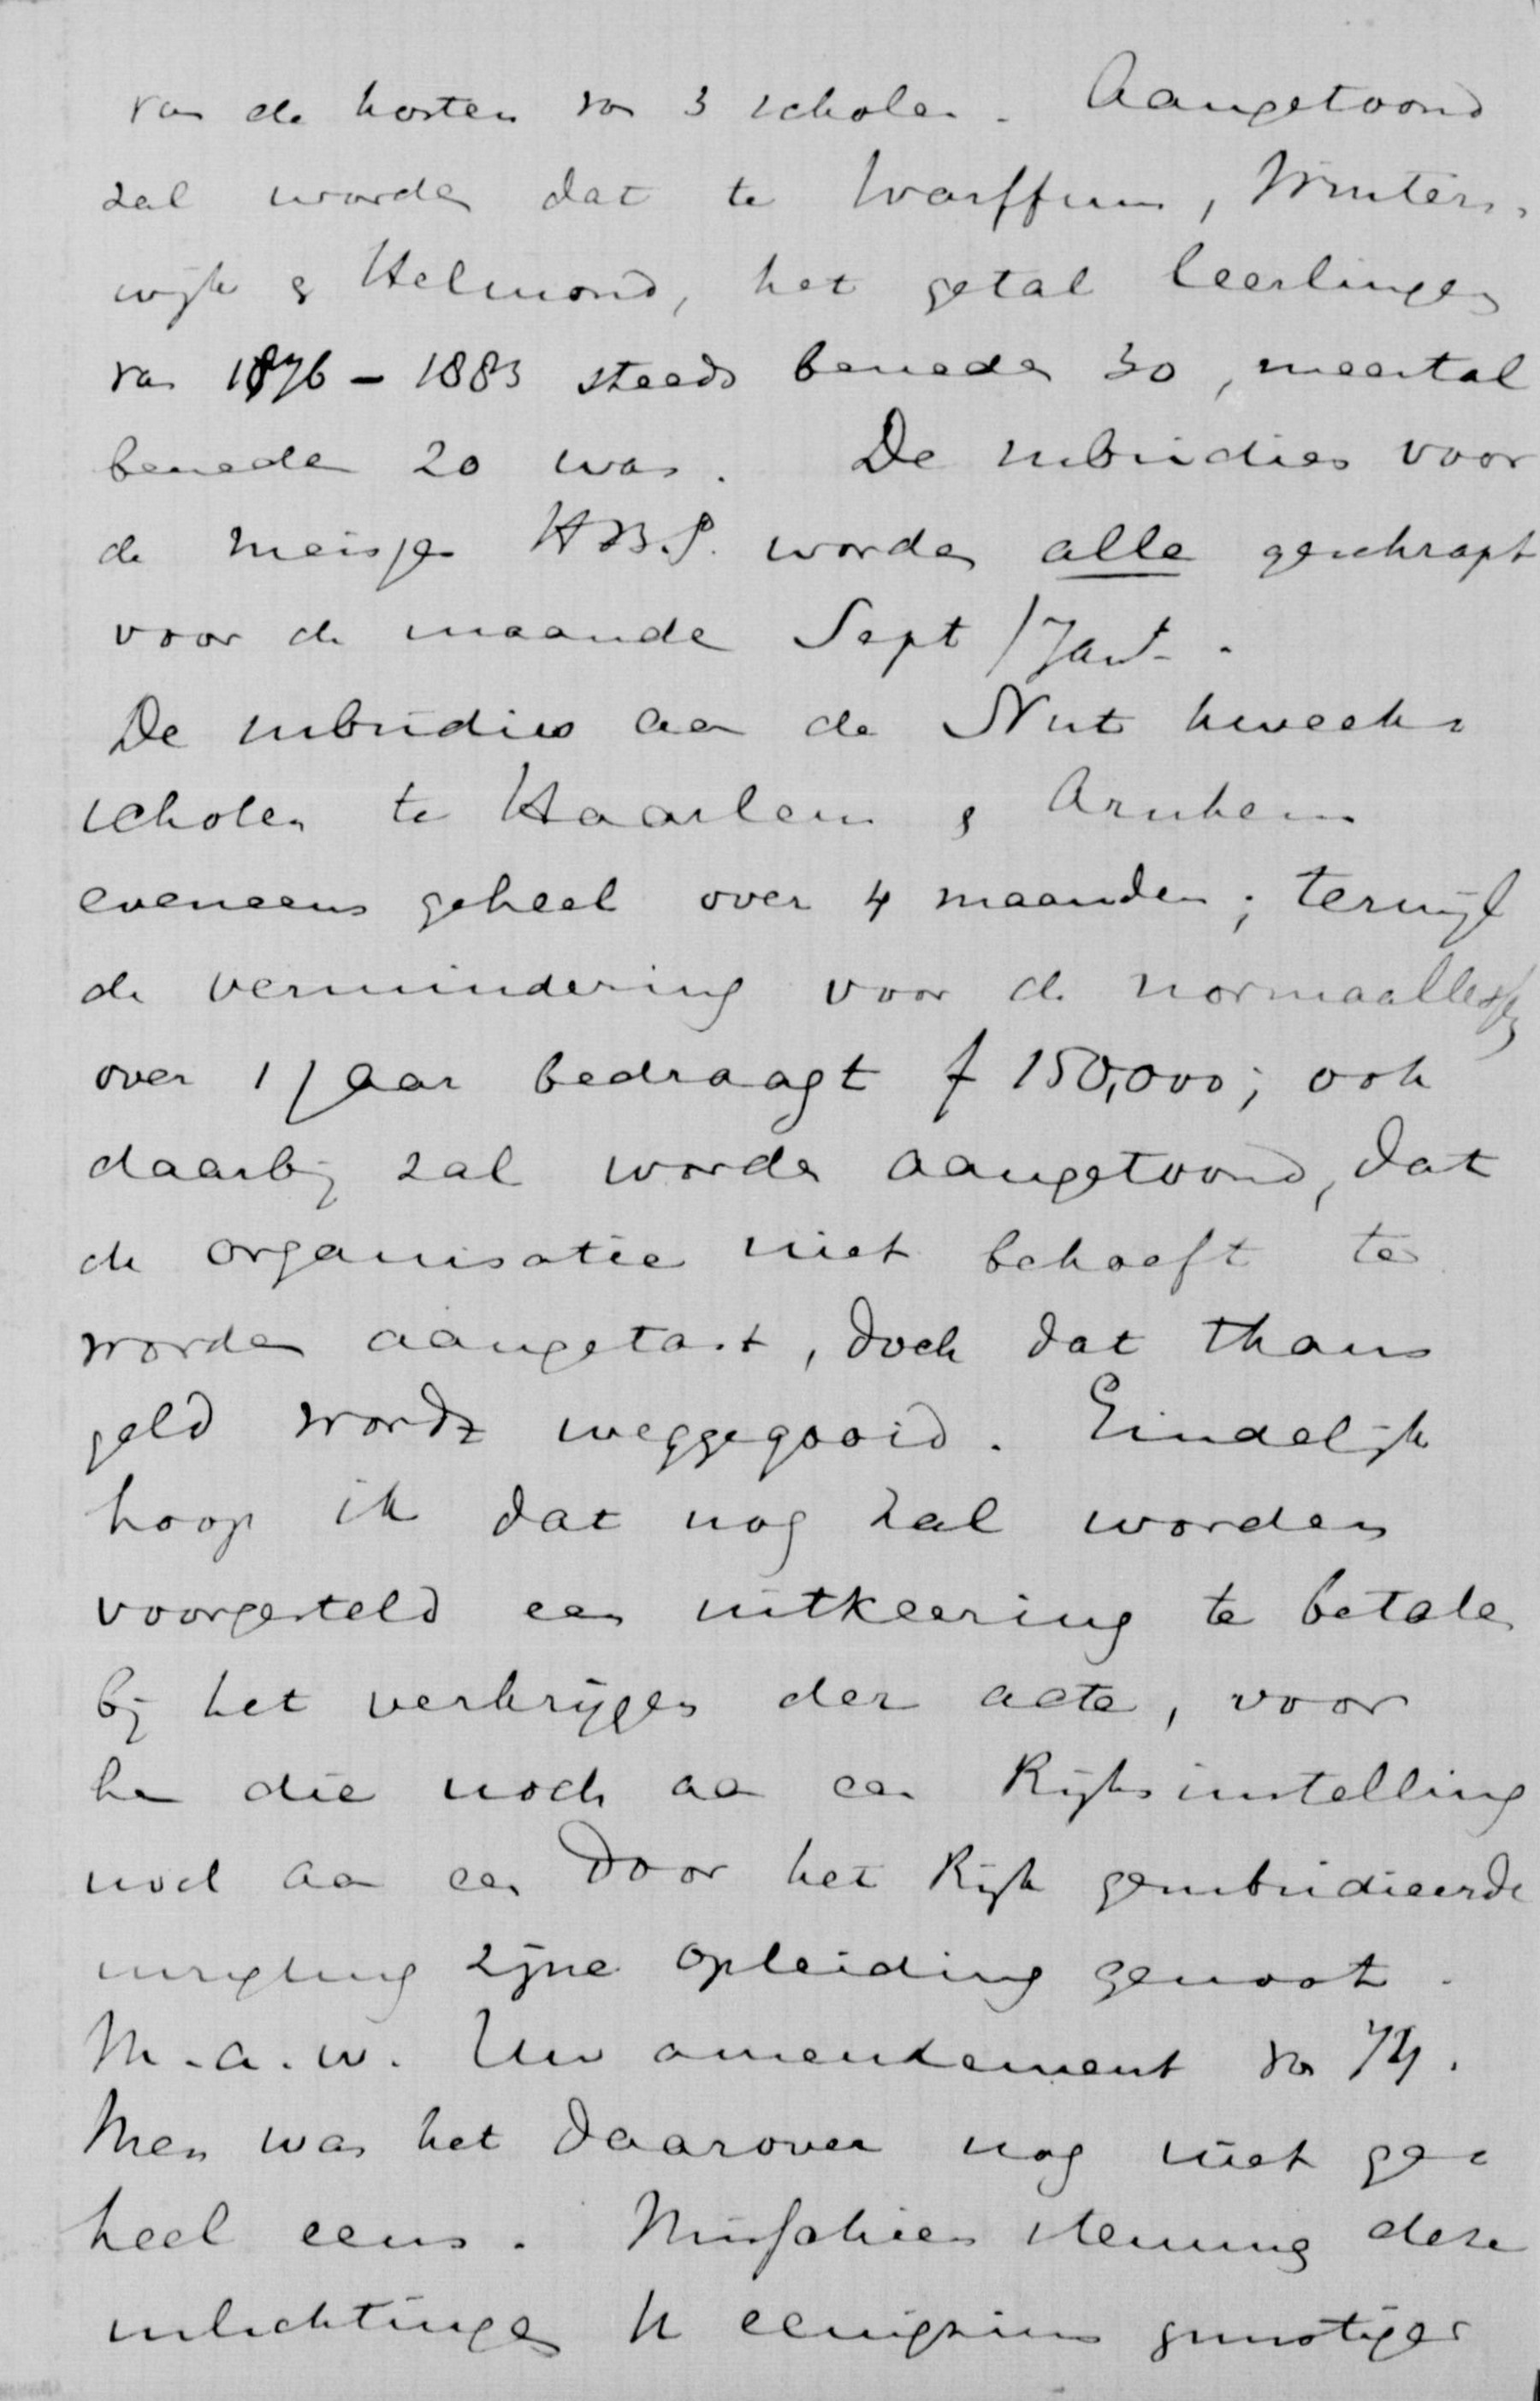 van de kosten van 3 scholen. Aangetoond
zal worden dat te Warffum, Winters-
wijk & Helmond, het getal leerlingen
van 1876 - 1883 steeds beneden 30, meestal
beneden 20 was. De subsidies voor
de meisjes H.B.S. worden alle geschrapt
voor de maanden Sept / Jan.
De subsidies aan de Nuts kweek-
scholen te Haarlem & Arnhem
eveneens geheel over 4 maanden; terwijl
de vermindering voor de normaallessen
over 1 jaar bedraagt f 150,000; ook
daarbij zal worden aangetoond, dat
de organisatie niet behoeft te
worden aangetast, doch dat thans
geld wordt weggegooid. Eindelijk
hoop ik dat nog zal worden
voorgesteld een uitkeering te betalen
bij het verkrijgen der acte, voor
hen die noch aan een Rijksinstelling
noch aan een door het Rijk gesubsidieerde
inrigting zijne opleiding genoot.
M.a.w. Uw amendement van 74.
Men was het daarover nog niet ge-
heel eens. Misschien stemmen deze
inlichtingen U eenigszins gunstiger